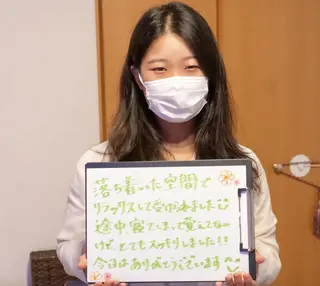 落ち着いた空間で
リラックスして受けられました
途中寝てしまって覚えてない
けど、とてもスッキリしました!!
今日はありがとうございます